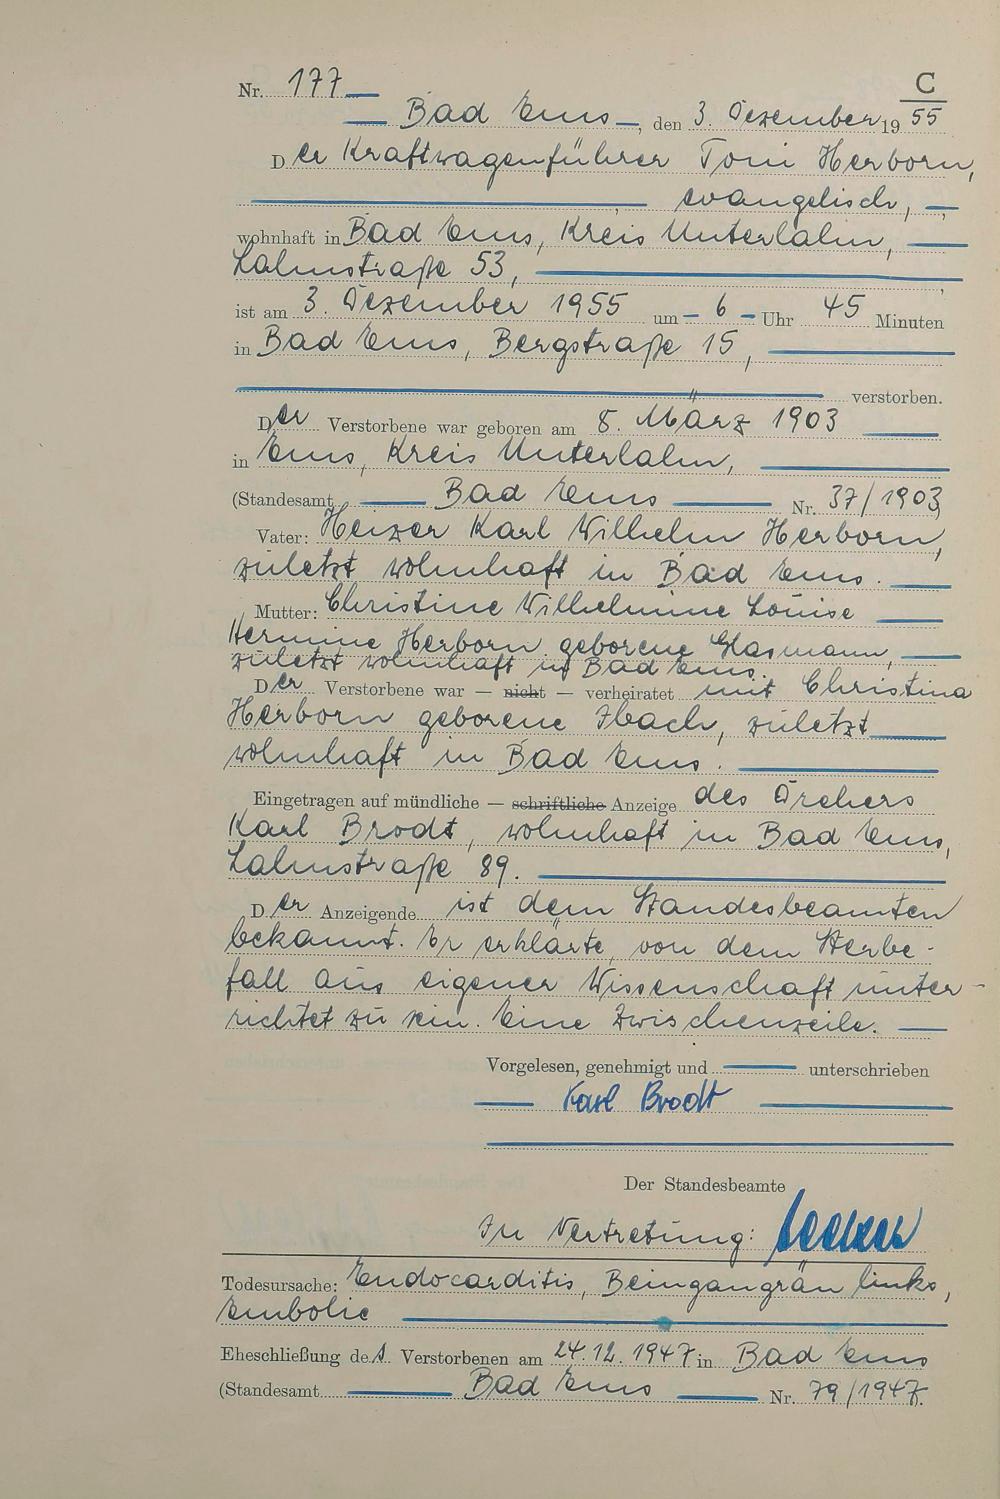 C
Nr. 177
Bad Ems, den 3. Dezember 1955
Der Kraftwagenführer Toni Herborn,
evangelisch,
wohnhaft in Bad Ems, Kreis Unterlahn,
Lahnstraße 53,
ist am 3. Dezember 1955 um 6 Uhr 45 Minuten
in Bad Ems, Bergstraße 15,
verstorben.
Der Verstorbene war geboren am 8. März 1903
in Ems, Kreis Unterlahn,
(Standesamt Bad Ems Nr. 37/1903)
Vater: Heizer Karl Wilhelm Herborn,
zuletzt wohnhaft in Bad Ems.
Mutter: Christine Wilhelmine Louise
Hermine Herborn geborene Glasmann,
zuletzt wohnhaft in Bad Ems.
Der Verstorbene war — nicht — verheiratet mit Christina
Herborn geborene Ibach, zuletzt
wohnhaft in Bad Ems.
Eingetragen auf mündliche — schriftliche Anzeige des Drehers
Karl Brodt, wohnhaft in Bad Ems,
Lahnstraße 89.
Der Anzeigende ist dem Standesbeamten
bekannt. Er erklärte, von dem Sterbe-
fall aus eigener Wissenschaft unter-
richtet zu sein. Eine Zwischenzeile.
Vorgelesen, genehmigt und unterschrieben
Karl Brodt
Der Standesbeamte
In Vertretung:
Todesursache: Endocarditis, Beingangrän links,
Embolie
Eheschließung des Verstorbenen am 24.12.1947 in Bad Ems
(Standesamt Bad Ems Nr. 79/1947.